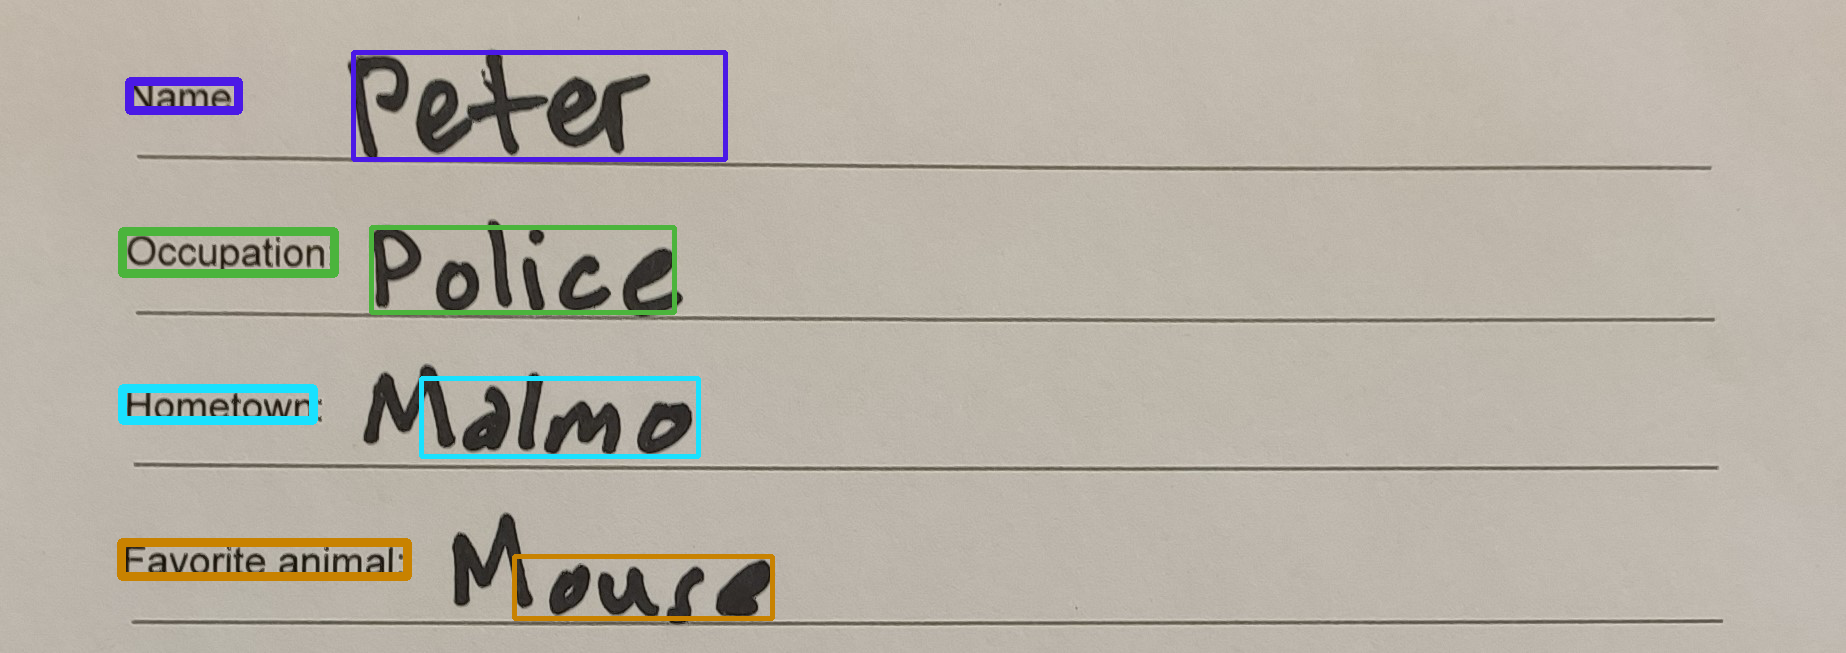 Name Peter
Occupation: Police
Hometown: Malmo
Favorite animal: Mouse